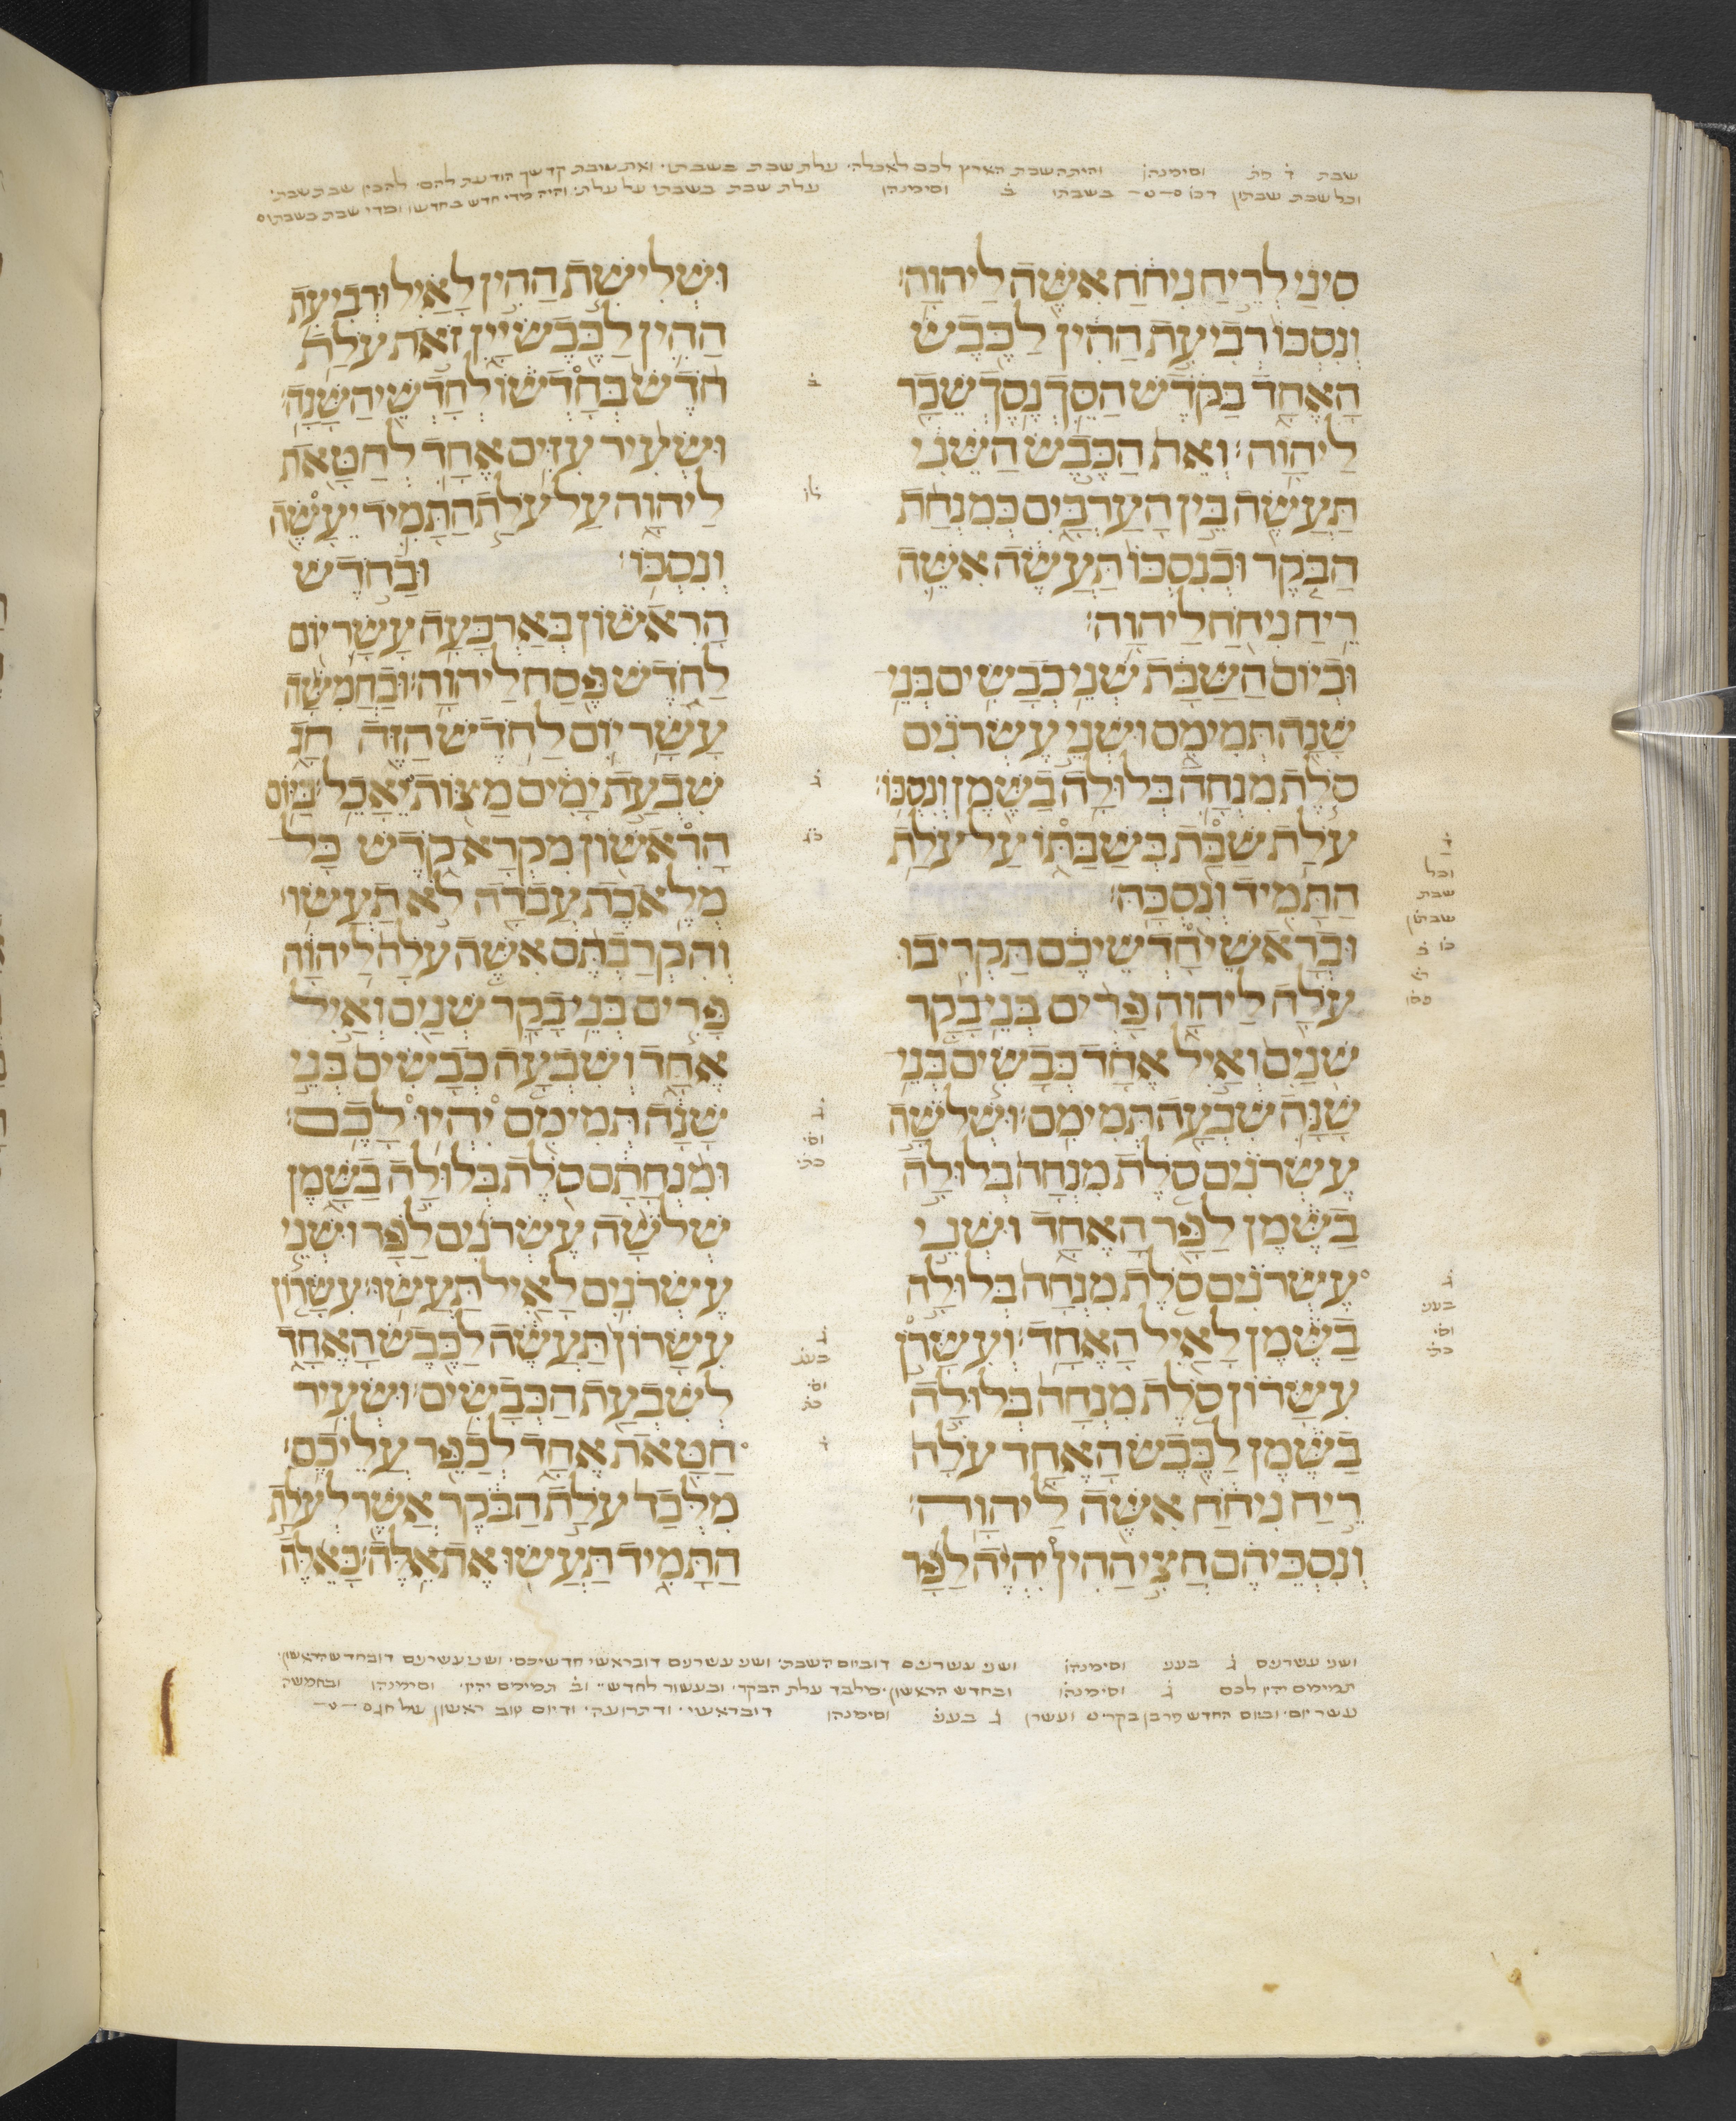 שבת ד̇ וסימנהון והיתה שבת הארץ לכם לאכלה· עלת שבת בשבתו· ואת שבת קדשך הודעת להם· להכין שבת שבת·
וכל שבת שבתון דכו בשבתו ב̇ וסימנהון עלת שבת בשבתו על עלת· והיה מדי חדש בחדשו ומדי שבת בשבתו
סִינַי לְרֵיחַ נִיחֹחַ אִשֶּׁה לַיהוָה׃
וְנִסְכּוֹ רְבִיעִת הַהִין לַכֶּבֶשׂ
הָאֶחָד בַּקֹּדֶשׁ הַסֵּךְ נֶסֶךְ שֵׁכָר
לַיהוָה׃ וְאֵת הַכֶּבֶשׂ הַשֵּׁנִי
תַּעֲשֶׂה בֵּין הָעַרְבָּיִם כְּמִנְחַת
הַבֹּקֶר וּכְנִסְכּוֹ תַּעֲשֶׂה אִשֵּׁה
רֵיחַ נִיחֹחַ לַיהוָה׃
וּבְיוֹם הַשַּׁבָּת שְׁנֵי כְבָשִׂים בְּנֵי
שָׁנָה תְּמִימִם וּשְׁנֵי עֶשְׂרֹנִים
סֹלֶת מִנְחָה בְּלוּלָה בַשֶּׁמֶן וְנִסְכּוֹ׃
עֹלַת שַׁבַּת בְּשַׁבַּתּוֹ עַל עֹלַת
הַתָּמִיד וְנִסְכָּהּ׃
וּבְרָאשֵׁי חָדְשֵׁיכֶם תַּקְרִיבוּ
עֹלָה לַיהוָה פָּרִים בְּנֵי בָקָר
שְׁנַיִם וְאַיִל אֶחָד כְּבָשִׂים בְּנֵי
שָׁנָה שִׁבְעָה תְּמִימִם׃ וּשְׁלֹשָׁה
עֶשְׂרֹנִים סֹלֶת מִנְחָה בְּלוּלָה
בַשֶּׁמֶן לַפָּר הָאֶחָד וּשְׁנֵי
עֶשְׂרֹנִים סֹלֶת מִנְחָה בְּלוּלָה
בַשֶּׁמֶן לָאַיִל הָאֶחָד׃ וְעִשָּׂרֹן
עִשָּׂרוֹן סֹלֶת מִנְחָה בְּלוּלָה
בַשֶּׁמֶן לַכֶּבֶשׂ הָאֶחָד עֹלָה
רֵיחַ נִיחֹחַ אִשֶּׁה לַיהוָה׃
וְנִסְכֵּיהֶם חֲצִי הַהִין יִהְיֶה לַפָּר
וּשְׁלִישִׁת הַהִין לָאַיִל וּרְבִיעִת
הַהִין לַכֶּבֶשׂ יָיִן זֹאת עֹלַת
חֹדֶשׁ בְּחָדְשׁוֹ לְחָדְשֵׁי הַשָּׁנָה׃
וּשְׂעִיר עִזִּים אֶחָד לְחַטָּאת
לַיהוָה עַל עֹלַת הַתָּמִיד יֵעָשֶׂה
וְנִסְכּוֹ׃ וּבַחֹדֶשׁ
הָרִאשׁוֹן בְּאַרְבָּעָה עָשָׂר יוֹם
לַחֹדֶשׁ פֶּסַח לַיהוָה׃ וּבַחֲמִשָּׁה
עָשָׂר יוֹם לַחֹדֶשׁ הַזֶּה חָג
שִׁבְעַת יָמִים מַצּוֹת יֵאָכֵל׃ בַּיּוֹם
הָרִאשׁוֹן מִקְרָא קֹדֶשׁ כָּל
מְלֶאכֶת עֲבֹדָה לֹא תַעֲשׂוּ׃
וְהִקְרַבְתֶּם אִשֶּׁה עֹלָה לַיהוָה
פָּרִים בְּנֵי בָקָר שְׁנַיִם וְאַיִל
אֶחָד וְשִׁבְעָה כְבָשִׂים בְּנֵי
שָׁנָה תְּמִימִם יִהְיוּ לָכֶם׃
וּמִנְחָתָם סֹלֶת בְּלוּלָה בַשָּׁמֶן
שְׁלֹשָׁה עֶשְׂרֹנִים לַפָּר וּשְׁנֵי
עֶשְׂרֹנִים לָאַיִל תַּעֲשׂוּ׃ עִשָּׂרוֹן
עִשָּׂרוֹן תַּעֲשֶׂה לַכֶּבֶשׂ הָאֶחָד
לְשִׁבְעַת הַכְּבָשִׂים׃ וּשְׂעִיר
חַטָּאת אֶחָד לְכַפֵּר עֲלֵיכֶם׃
מִלְּבַד עֹלַת הַבֹּקֶר אֲשֶׁר לְעֹלַת
הַתָּמִיד תַּעֲשׂוּ אֶת אֵלֶּה׃ כָּאֵלֶּה
וכל
שבת
שבתון
ושני עשרנים ג̇ בענ וסימנהון ושני עשרנים דוביום השבת· ושני עשרנים דובראשי חדשיכם· ושני עשרנים דובחדש הראשון·
תמימם יהיו לכם ג̇ וסימנהון ובחדש הראשון· מלבד עלת הבקר· ובעשור לחדש· וב̇ תמימם יהיו· וסימנהון ובחמשה
עשר יום· וביום החדש פר בן בקר· ועשרן ג̇ בענ וסימנהון דובראשי· ודתרועה· ודיום טוב ראשון של חג